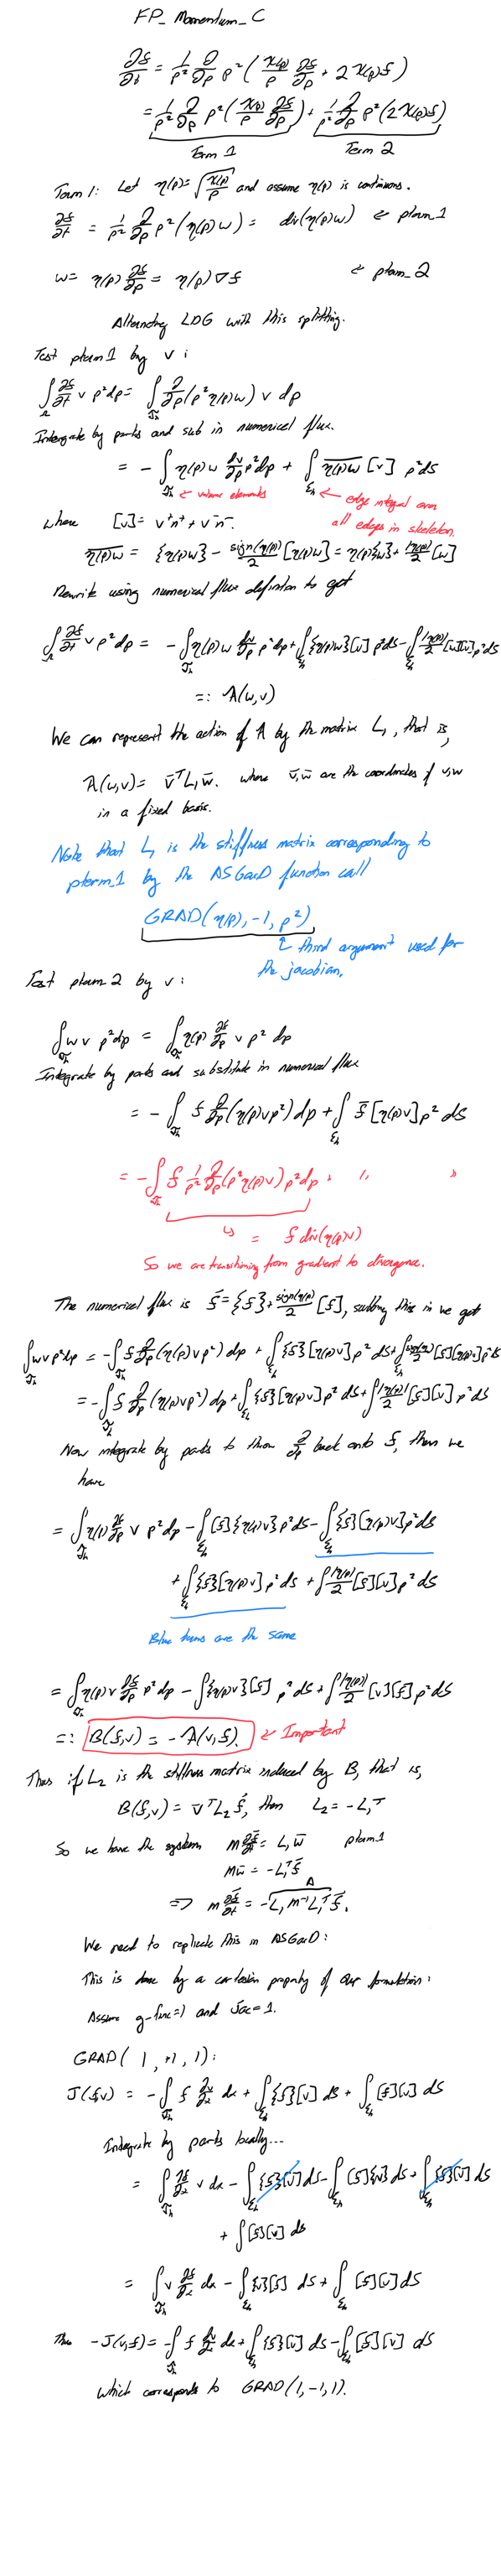 FP_Momentum_C
∂f/∂t = 1/p² ∂/∂p p² ( χ(p)/p ∂f/∂p + 2χ(p)f )
= 1/p² ∂/∂p p² ( χ(p)/p ∂f/∂p ) + 1/p² ∂/∂p p² (2χ(p)f)
Term 1 Term 2
Term 1: Let η(p) = √(χ(p)/p) and assume η(p) is continuous.
∂f/∂t = 1/p² ∂/∂p p² (η(p)w) = div(η(p)w) ← pterm_1
w = η(p) ∂f/∂p = η(p)∇f ← pterm_2
Alternating LDG with this splitting.
Test pterm1 by v:
∫_Ω ∂f/∂t v p²dp = ∫_𝒯h ∂/∂p(p²η(p)w) v dp
Integrate by parts and sub in numerical flux.
= -∫_𝒯h η(p)w ∂v/∂p p²dp + ∫_ℰh \overline{η(p)w} [v] p²dS
← volume elements ← edge integral over all edges in skeleton.
where [v] = v⁺n⁺ + v⁻n⁻.
\overline{η(p)w} = {η(p)w} - sign(η(p))/2 [η(p)w] = η(p){w} + |η(p)|/2 [w]
Rewrite using numerical flux definition to get
∫_Ω ∂f/∂t v p²dp = -∫_𝒯h η(p)w ∂v/∂p p²dp + ∫_ℰh {η(p)w}[v] p²dS - ∫_ℰh |η(p)|/2 [w][v] p²dS
=: A(w,v)
We can represent the action of A by the matrix L₁, that is,
A(w,v) = v̄ᵀL₁w̄. where v̄,w̄ are the coordinates of v,w
in a fixed basis.
Note that L₁ is the stiffness matrix corresponding to
pterm_1 by the ASGarD function call
GRAD(η(p),-1,p²)
↑ third argument used for
the jacobian.
Test pterm 2 by v:
∫_𝒯h w v p²dp = ∫_𝒯h η(p) ∂f/∂p v p² dp
Integrate by parts and substitute in numerical flux
= -∫_𝒯h f ∂/∂p(η(p)vp²) dp + ∫_ℰh f̄ [η(p)v] p² dS
= -∫_𝒯h f 1/p² ∂/∂p(p²η(p)v) p²dp + " "
↳ = f div(η(p)v)
So we are transitioning from gradient to divergence.
The numerical flux is f̄ = {f} + sign(η(p))/2 [f], subbing this in we get
∫_𝒯h wvp²dp = -∫_𝒯h f ∂/∂p(η(p)vp²) dp + ∫_ℰh {f}[η(p)v] p² dS + ∫_ℰh sign(η(p))/2 [f][η(p)v] p²dS
= -∫_𝒯h f ∂/∂p(η(p)vp²) dp + ∫_ℰh {f}[η(p)v] p² dS + ∫ |η(p)|/2 [f][v] p²dS
Now integrate by parts to throw ∂/∂p back onto f, then we
have
= ∫_𝒯h η(p) ∂f/∂p v p²dp - ∫_ℰh [f]{η(p)v} p²dS - ∫_ℰh {f}[η(p)v] p²dS
+ ∫_ℰh {f}[η(p)v] p²dS + ∫ |η(p)|/2 [f][v] p²dS
Blue terms are the same
= ∫_𝒯h η(p)v ∂f/∂p p²dp - ∫{η(p)v}[f] p²dS + ∫ |η(p)|/2 [v][f] p²dS
=: B(f,v) = -A(v,f). ← Important
Thus if L₂ is the stiffness matrix induced by B, that is,
B(f,v) = v̄ᵀL₂f̄, then L₂ = -L₁ᵀ
So we have the system M ∂f̄/∂t = L₁w̄ pterm1
Mw̄ = -L₁ᵀf̄
⇒ M ∂f̄/∂t = -L₁M⁻¹L₁ᵀ f̄.
A
We need to replicate this in ASGarD:
This is done by a cartesian property of our formulation:
Assume g-func=1 and Jac=1.
GRAD( 1, +1, 1):
J(f,v) = -∫_𝒯h f ∂v/∂x dx + ∫_ℰh {f}[v] dS + ∫_ℰh [f][v] dS
Integrate by parts locally...
= ∫_𝒯h ∂f/∂x v dx - ∫_ℰh {f}[v] dS - ∫_ℰh [f]{v} dS + ∫_ℰh {f}[v] dS
+ ∫[f][v] dS
= ∫_𝒯h v ∂f/∂x dx - ∫_ℰh {v}[f] dS + ∫_ℰh [f][v] dS
Thus -J(v,f) = -∫_𝒯h f ∂v/∂x dx + ∫_ℰh {f}[v] dS - ∫_ℰh [f][v] dS
which corresponds to GRAD(1,-1,1).